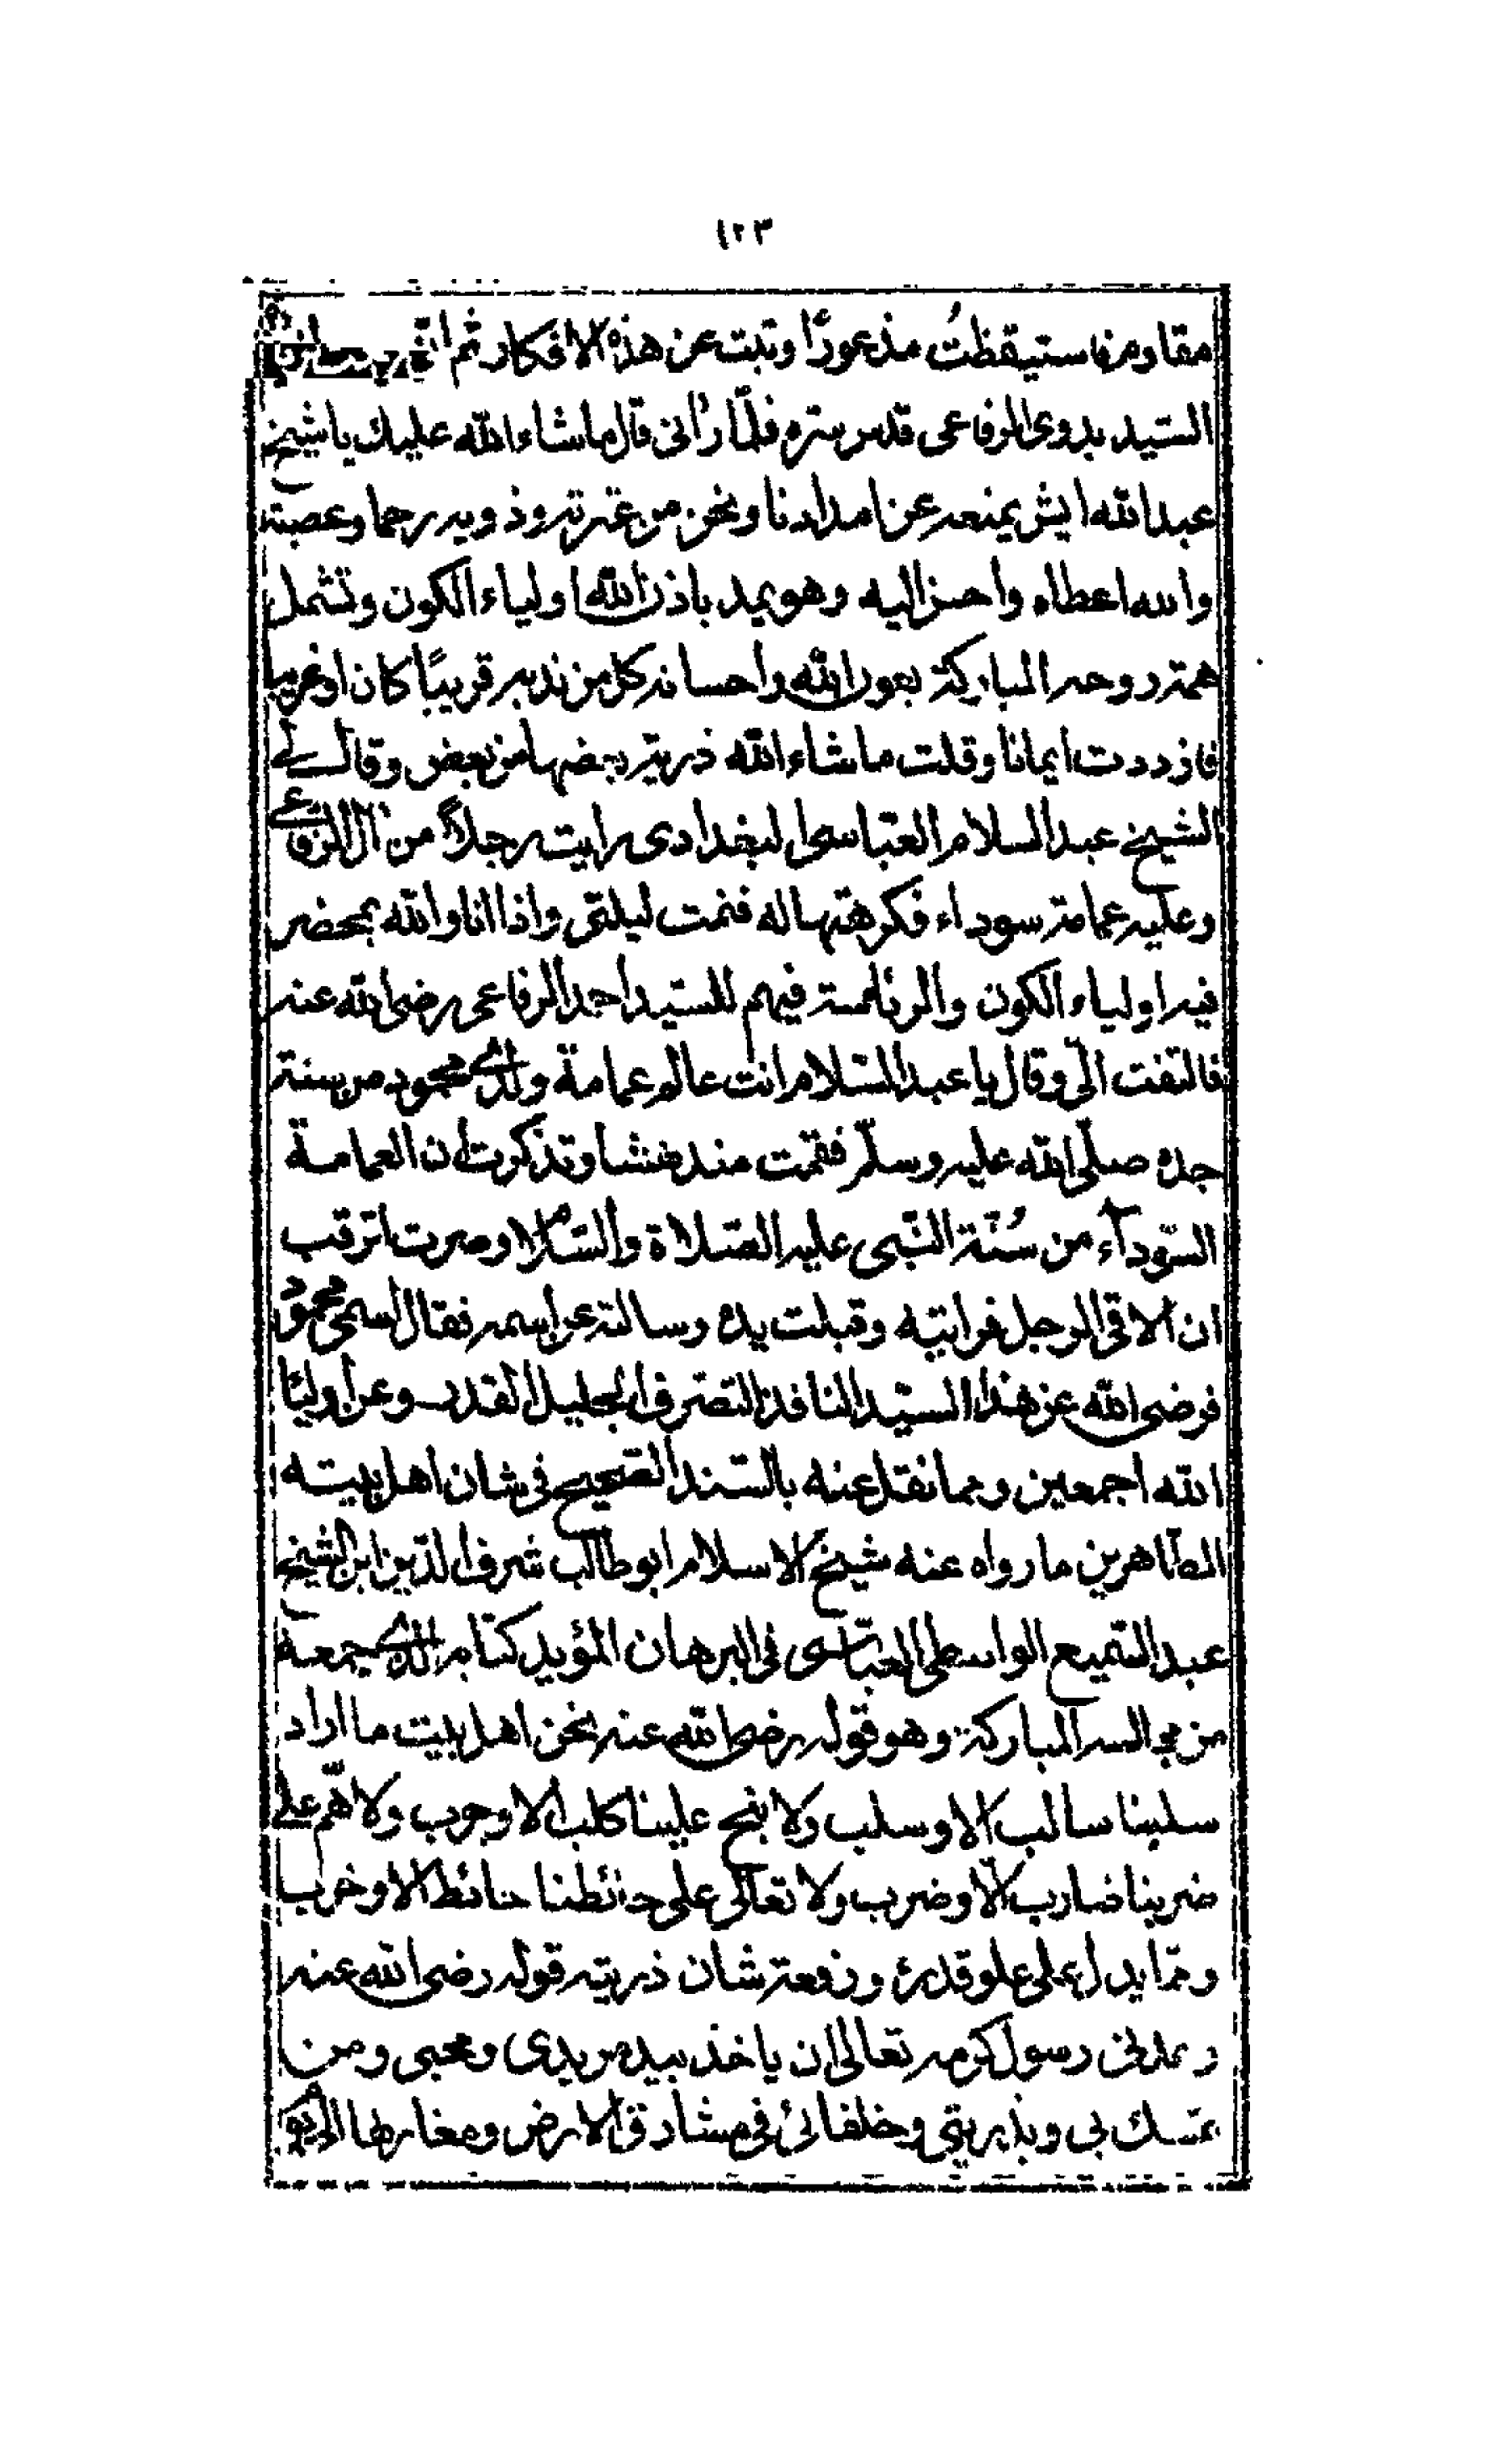 ١٢٣
مقاومن فاستيقظتُ مذعورًا وتبت عن هذه الافكار ثم
السّيد بدوى الرفاعى قدس سره فلمّا رأنى قال ما شاء الله عليك يا شيخ
عبد الله ايش يمنعه عن امدادنا ونحن من عترته وذويه رحما وعصبة
والله اعطاه واحسن اليه وهو يمد باذن الله اولياء الكون وتشمل
همة روحه المباركة بعون الله واحسانه كل من ندبه قريبًا كان او غريبا
فازددت ايمانا وقلت ما شاء الله ذرية بعضها من بعض وقال لے
الشيخ عبد السلام العباسى البغدادى رايت رجلاً من آل الرفاعے
وعليه عمامة سوداء فكرهتها له فنمت ليلتى واذا انا والله بمحضر
فيه اولياء الكون والرئاسة فيهم للسّيد احمد الرفاعى رضى الله عنه
فالتفت الىّ وقال يا عبد السّلام انت عالم عمامة ولدى محمود من سنة
جده صلّى الله عليه وسلّم فقمت مندهشا وتذكرت ان العمامة
السّودآء من سُنّة النّبى عليه الصّلاة والسّلام وصرت اترقب
ان الاقى الرجل فرايته وقبلت يده وسالته عن اسمه فقال اسمى محمود
فرضى الله عن هذا السّيد النافذ التصرف الجليل القدر وعن اوليا
الله اجمعين ومما نقل عنه بالسّند الصّحيح فى شان اهل بيته
الطّاهرين ما رواه عنه شيخ الاسلام ابو طالب شرف الدّين ابن الشيخ
عبد السّميع الواسطى العبّاسى فى البرهان المؤيد كتابه الذى جمعه
من مجالسه المباركة وهو قوله رضى الله عنه نحن اهل بيت ما اراد
سلبنا سالب الا وسلب ولا نبح علينا كلب الا وجرب ولا همّ على
ضربنا ضارب الّا وضرب ولا تعالى على حائطنا حائط الا وخرب
وممّا يدل على علو قدره ورفعة شان ذريته قوله رضى الله عنه
وعدنى رسول كرمه تعالى ان ياخذ بيد مريدى ومحبى ومن
تمسّك بى وبذريتى وخلفائى فى مشارق الارض ومغاربها الى يوم